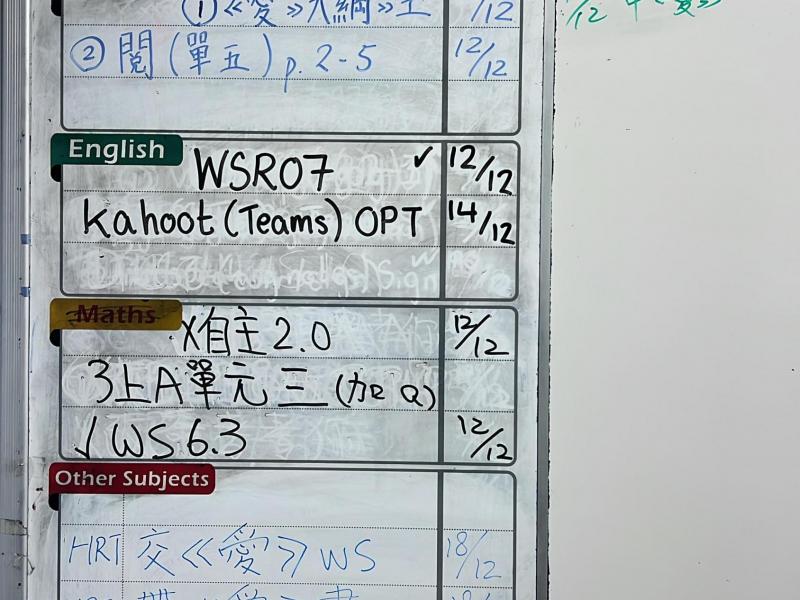 ①《愛》大綱 /12
② 閱(單五) p. 2-5 12/12
/12
English
WSR07 ✓ 12/12
Kahoot (Teams) OPT 14/12
Maths
X自主2.0 12/12
3上A單元三(加Q)
√WS 6.3 12/12
Other Subjects
HRT 交《愛》WS 18/12